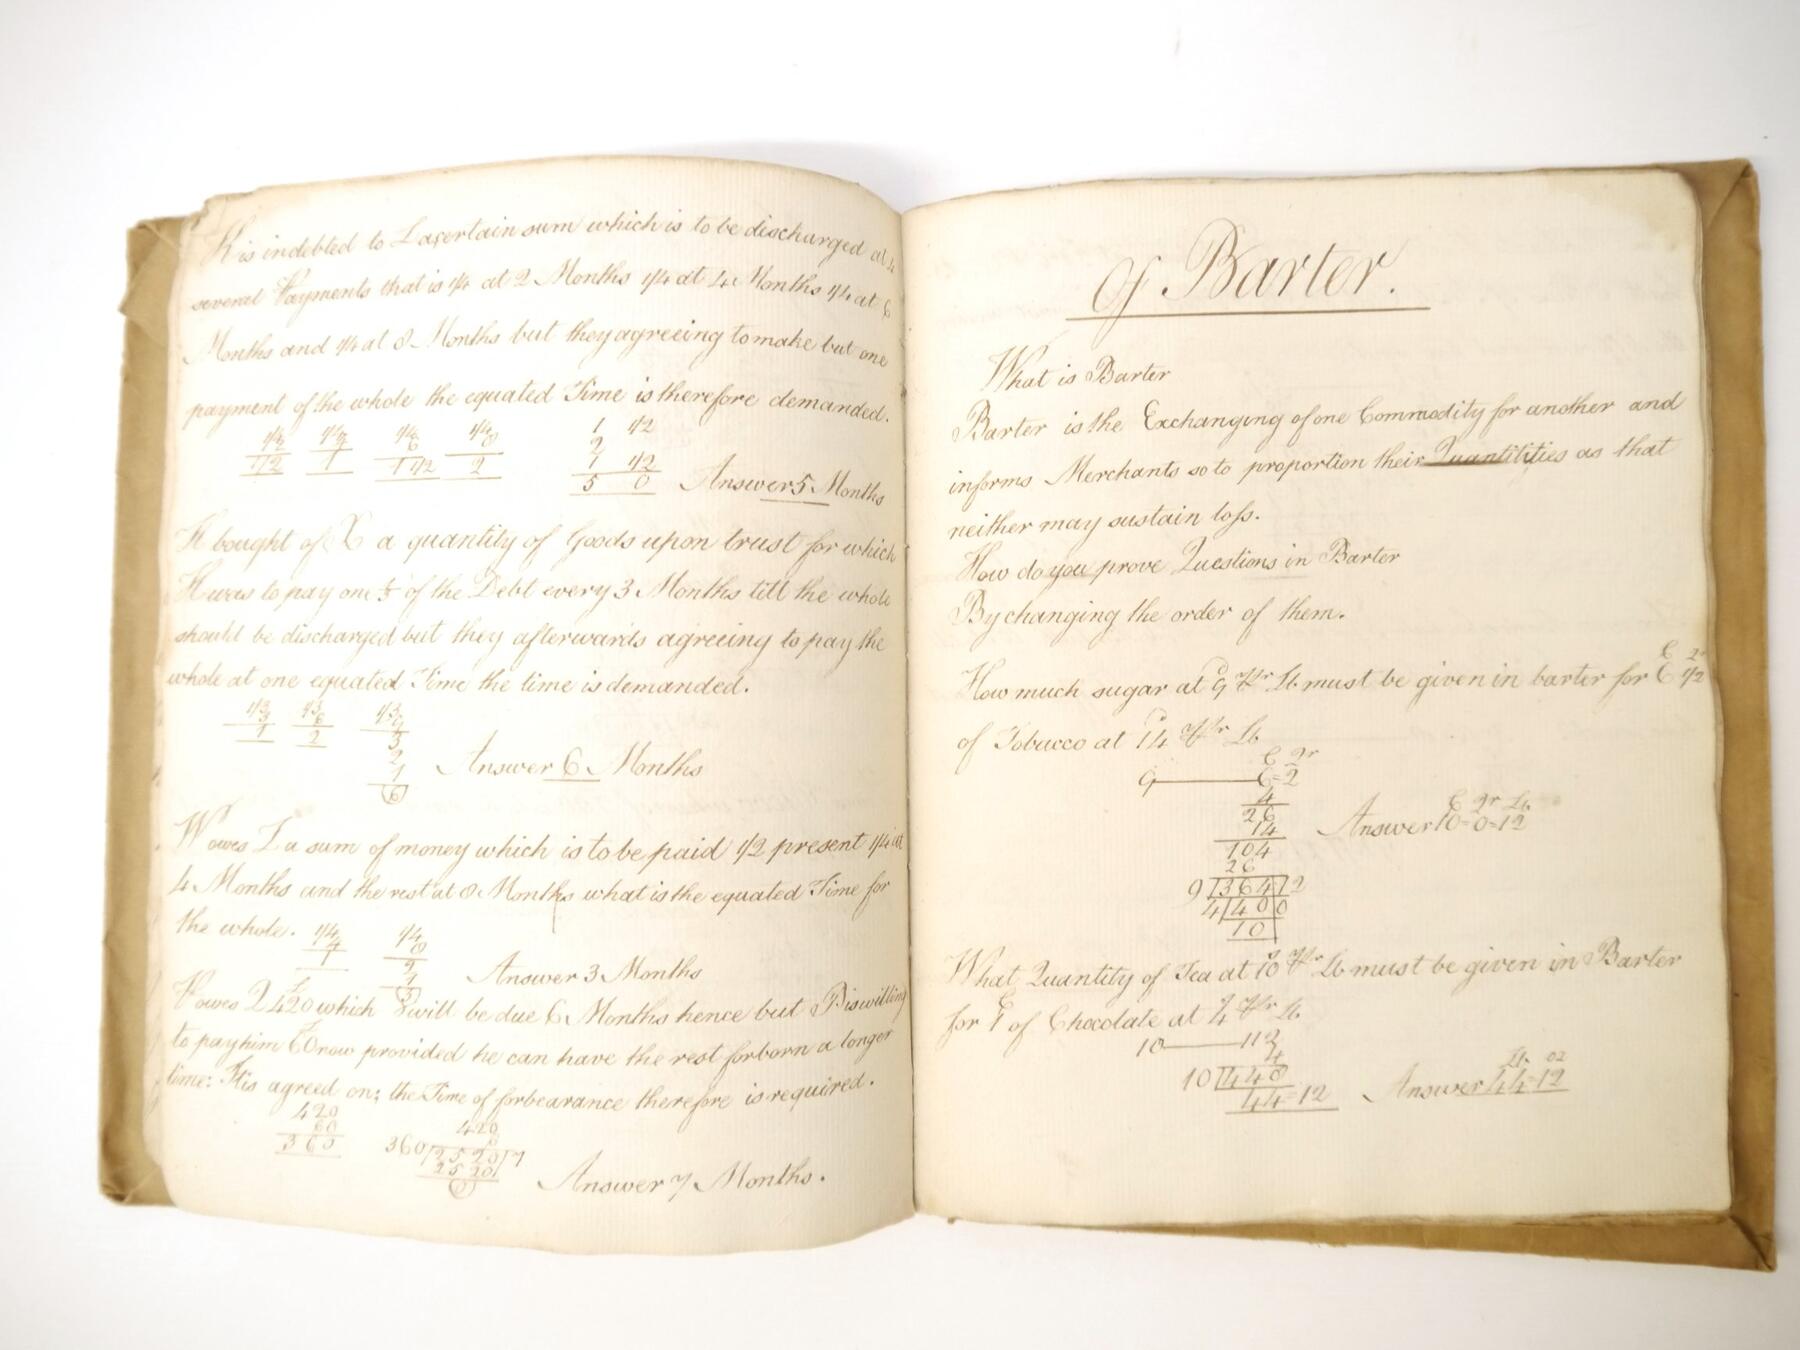 K is indebted to L a certain sum which is to be discharged at 4
several Payments that is 1/4 at 2 Months 1/4 at 4 Months 1/4 at 6
Months and 1/4 at 8 Months but they agreeing to make but one
payment of the whole the equated Time is therefore demanded.
1/4 1/4 1/4 1/4 1 1/2
2 4 6 8 2
1/2 1 1 1/2 2 1 1/2
5 0 Answer 5 Months
H bought of X a quantity of Goods upon trust for which
H was to pay one 1/3 of the Debt every 3 Months till the whole
should be discharged but they afterwards agreeing to pay the
whole at one equated Time the time is demanded.
1/3 1/3 1/3
3 6 9
1 2 3
2
1
6
Answer 6 Months
W owes Z a sum of money which is to be paid 1/2 present 1/4 at
4 Months and the rest at 8 Months what is the equated Time for
the whole. 1/4 1/4
4 8
1 2
1
Answer 3 Months
P owes Q £420 which will be due 6 Months hence but P is willing
to pay him £60 now provided he can have the rest forborn a longer
time: Itis agreed on; the Time of forbearance therefore is required.
420 420
60 6
360 360/2520/7
2520
0
Answer 7 Months.
Of Barter.
What is Barter
Barter is the Exchanging of one Commodity for another and
informs Merchants so to proportion their Quantilities as that
neither may sustain loss.
How do you prove Questions in Barter
By changing the order of them.
C Qr
How much sugar at 9d pr Lb must be given in barter for 6 1/2
of Tobucco at 14d pr Lb
C Qr
9 — 6=2
4
26 C Qr Lb
14 Answer 10=0=12
104
26
9/364/2
4/40 0
10
What Quantity of Tea at 10s pr Lb must be given in Barter
C
for 1 of Chocolate at 4s pr Lb
10 — 112
4
10/448 Lb oz
44=12 Answer 44=12